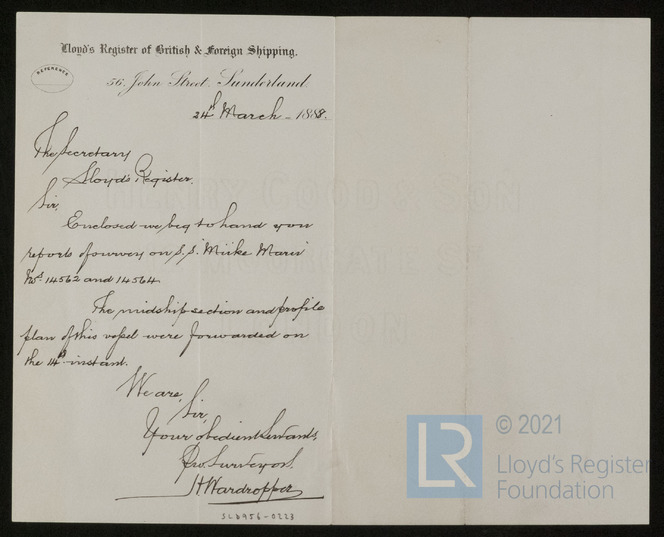 Lloyd's Register of British & Foreign Shipping.
REFERENCE
56, John Street, Sunderland.
24th March - 1888.
The Secretary
Lloyd's Register.
Sir,
Enclosed we beg to hand you
reports of survey on S.S. "Miike Maru"
Nos. 14562 and 14564.
The midship section and profile
plan of this vessel were forwarded on
the 14th instant.
We are,
Sir,
Your obedient Servants,
Pro. Surveyors.
H Wardropper
SLD956-0223
HENRY GOOD & SON
MOORGATE ST
LONDON
LR
© 2021
Lloyd's Register
Foundation